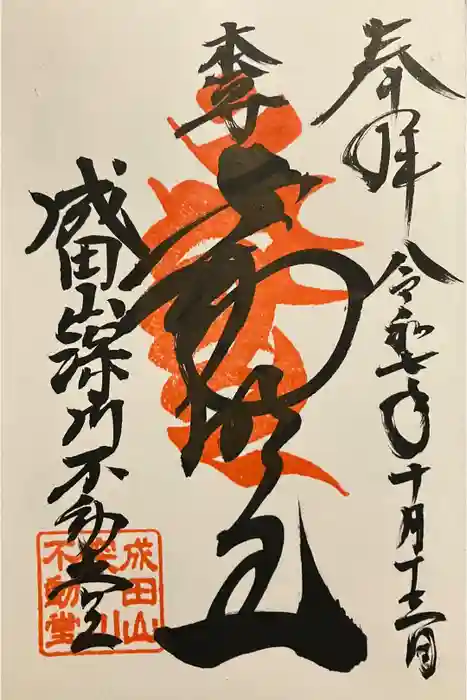 奉拝
令和七年十月十三日
不動明王
成田山深川不動堂
成田山
深川
不動堂